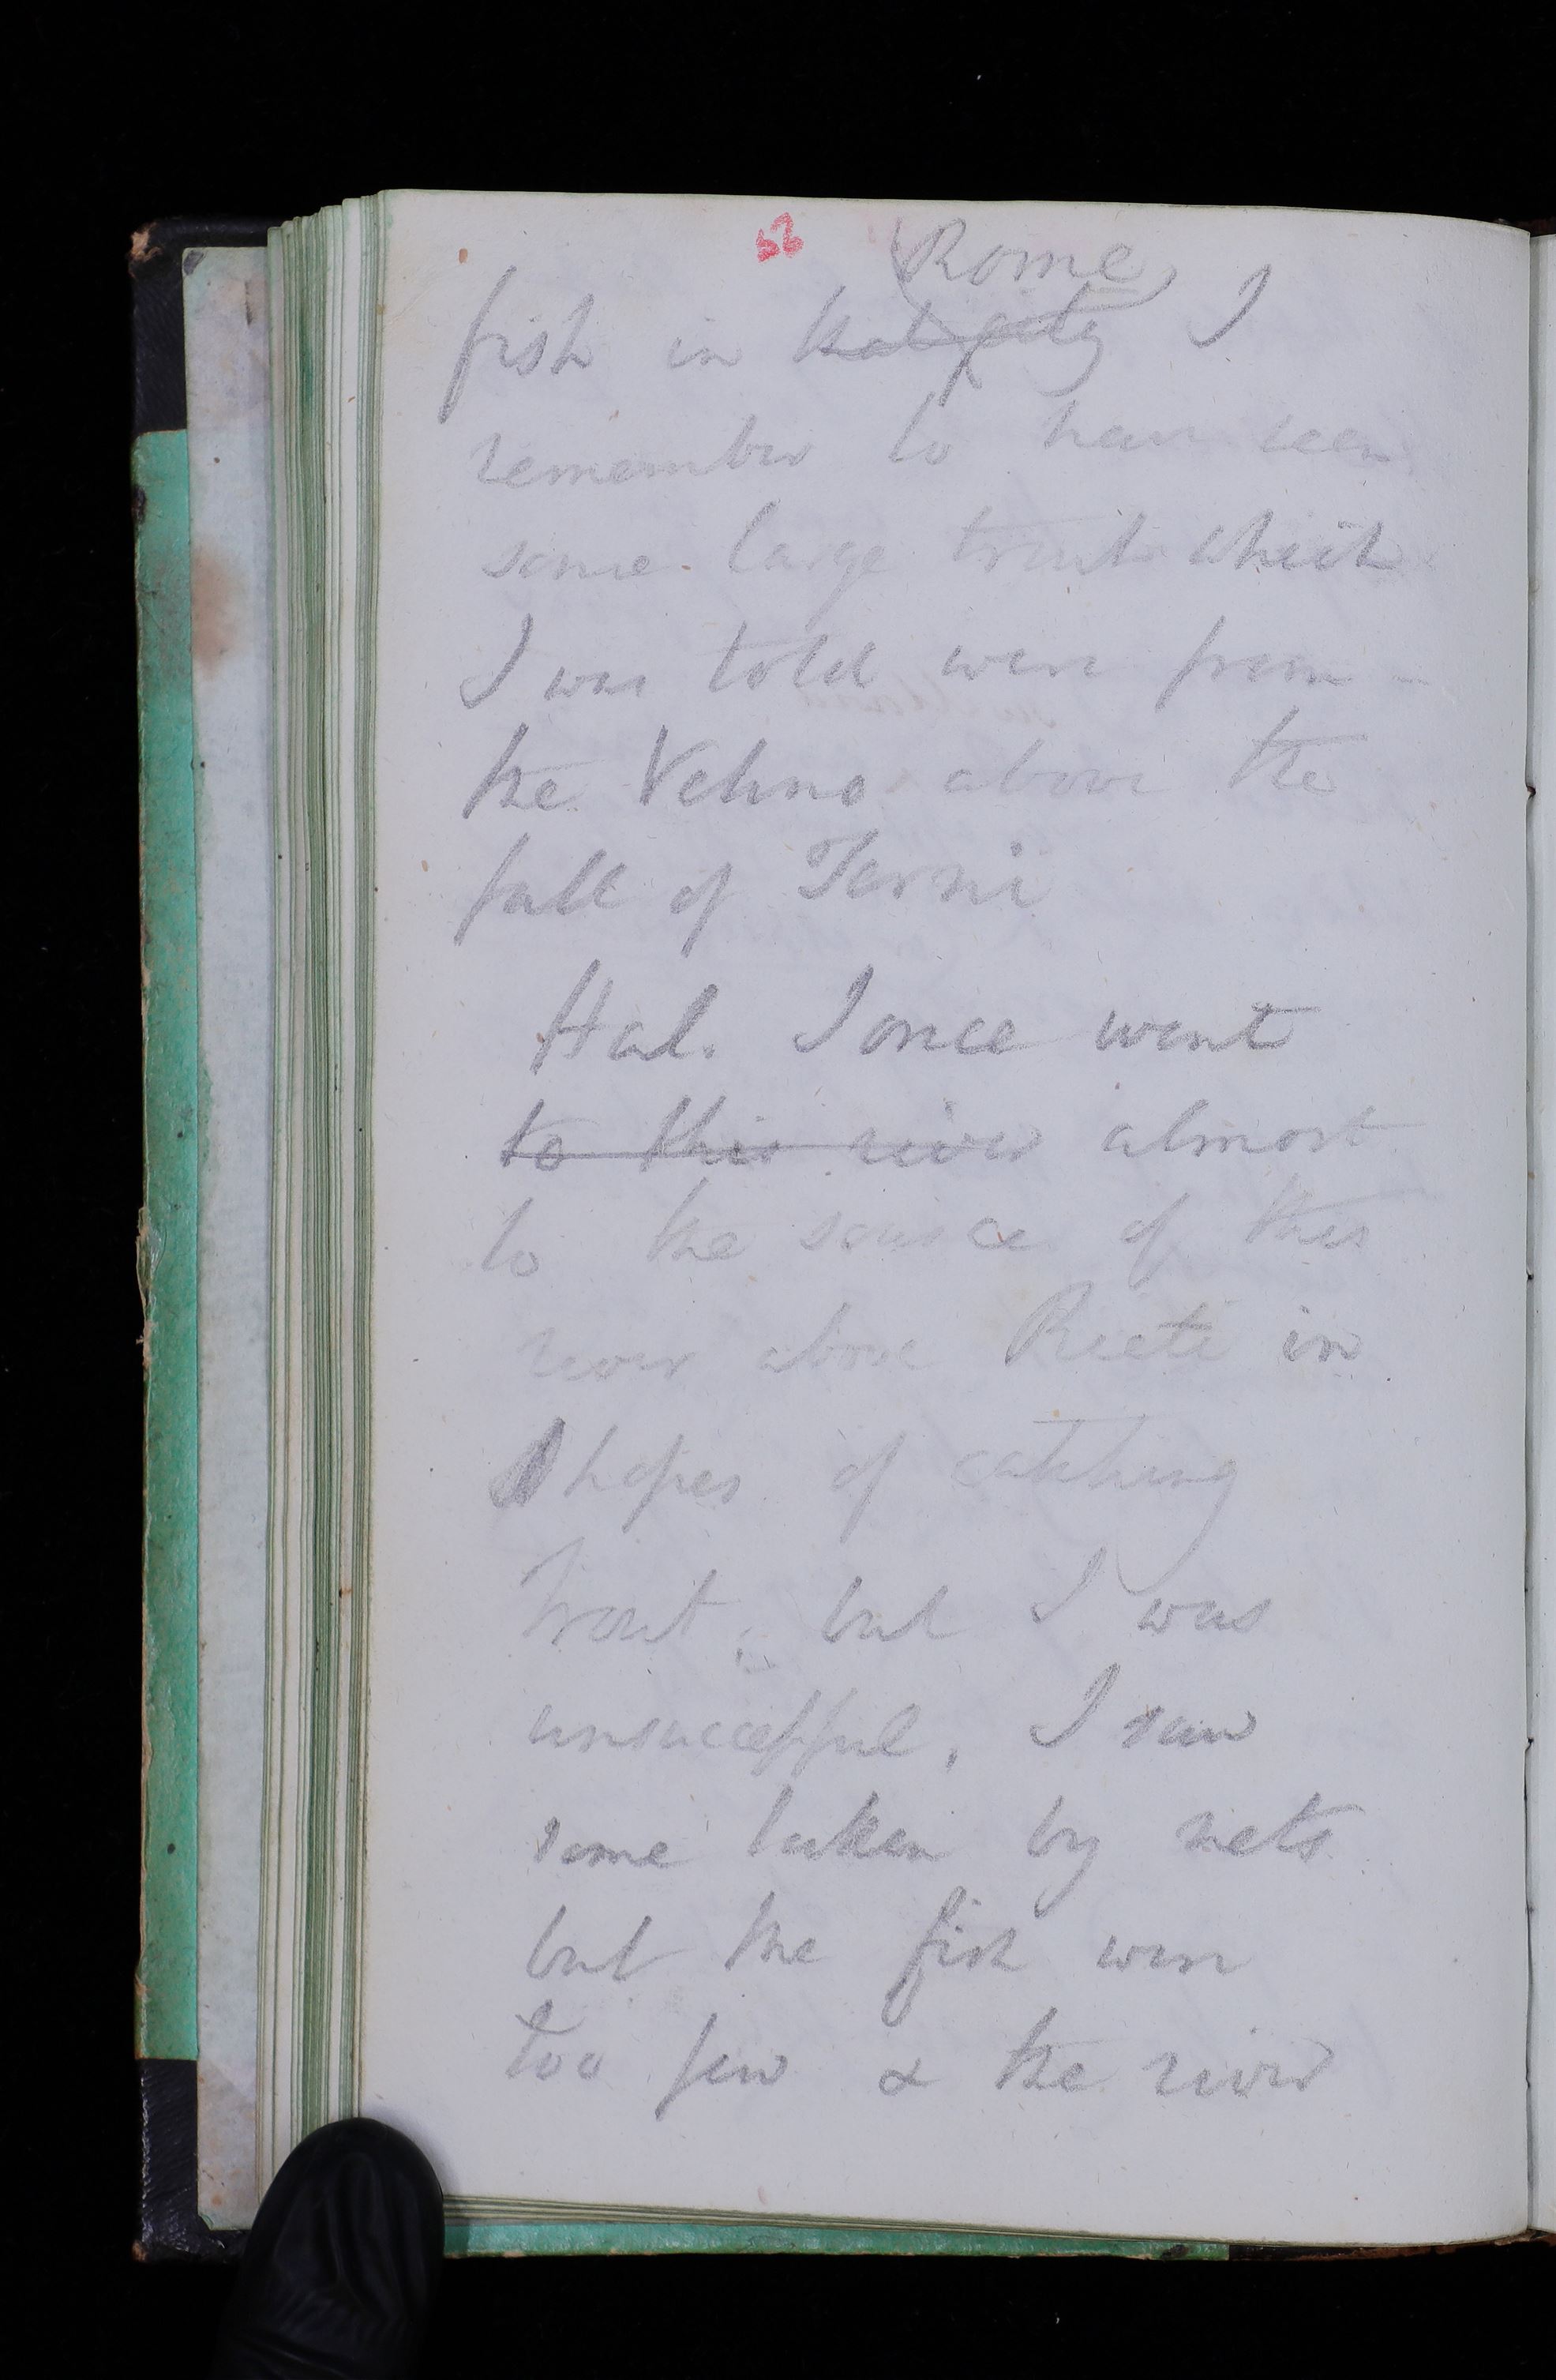 56
Rome
fish in that city I
remember to have seen
some large trout which
I was told were from -
the Velino above the
fall of Terni
Hal. I once went
to this river almost
to the source of this
river above Riete in
hopes of catching
trout, but I was
unsuccessful. I saw
some taken by nets
but the fish were
too few & the river